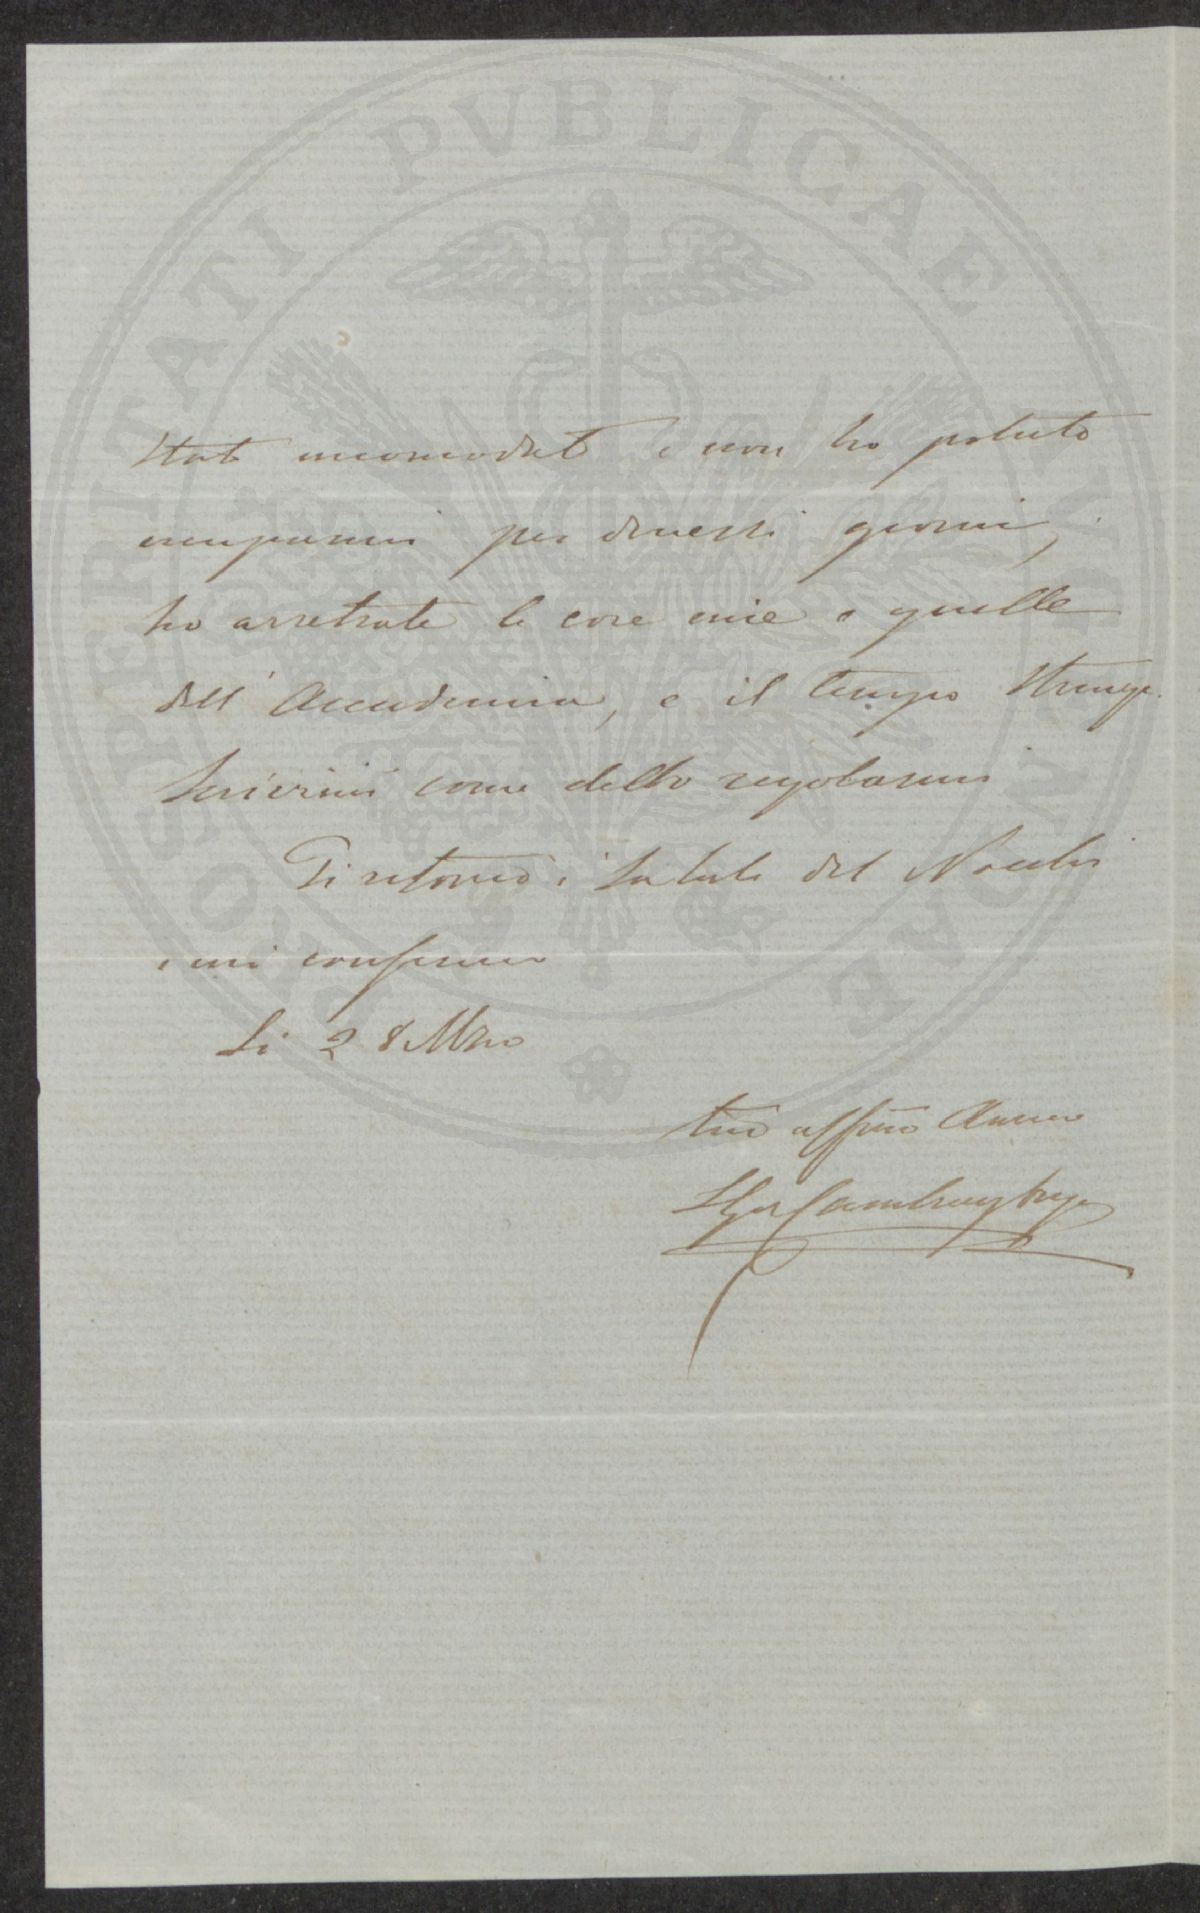 PROSPERITATI PVBLICAE AVGENDAE
stato incomodato e non ho potuto
occuparmi per diversi giorni,
ho arretrate le cose mie e quelle
dell' Accademia, e il tempo stringe.
Scrivimi come debbo regolarmi
Ti ritorno i saluti del Nocchi
e mi confermo
Li 28 Mzo
tuo affmo Amico
L Gr Cambray Digny